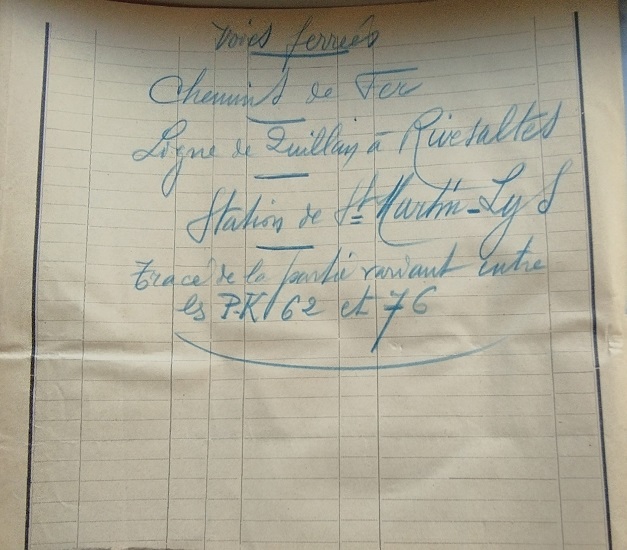 Voies ferrées
Chemins de Fer
Ligne de Quillan à Rivesaltes
Station de St Martin-Lys
Tracé de la partie variant entre
les P.K 62 et 76